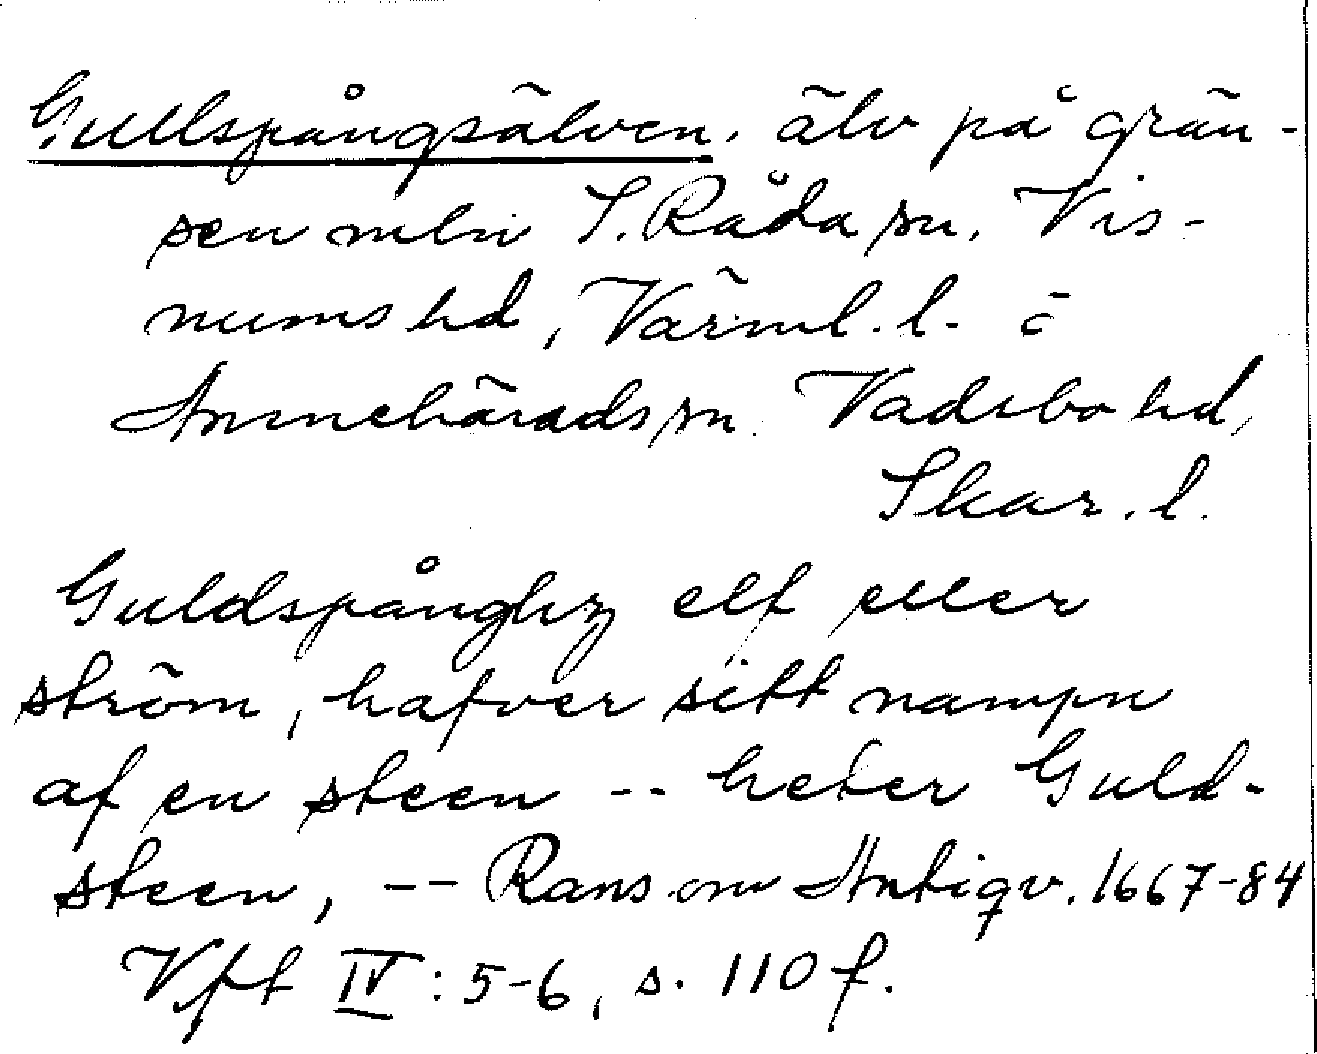 Gullspångsälven, älv på grän-
sen mln S. Råda sn, Vis-
nums hd, Värml. l. o
Amnehärads sn. Vadsbo hd,
Skar. l.
Guldspångz elf eller
ström, hafver sitt nampn
af en steen -- heter Guld-
steen, -- Rans om Antiqv. 1667-84
Vft IV: 5-6, s. 110 f.